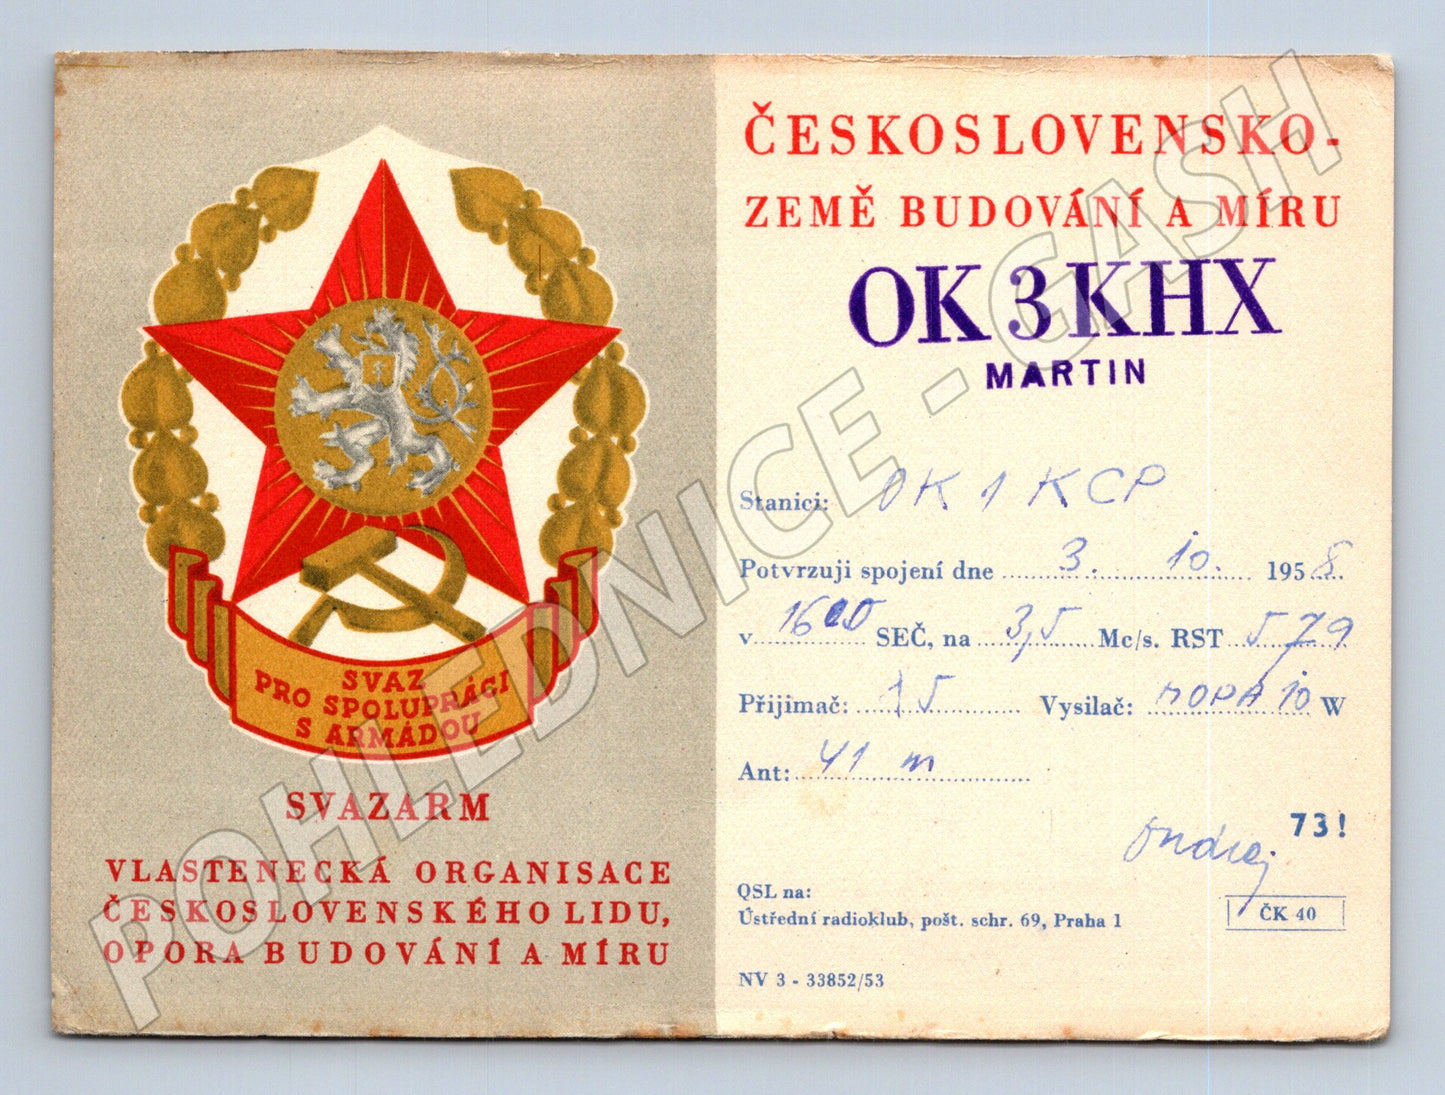 SVAZ
PRO SPOLUPRÁCI
S ARMÁDOU
SVAZARM
VLASTENECKÁ ORGANISACE
ČESKOSLOVENSKÉHO LIDU,
OPORA BUDOVÁNÍ A MÍRU
ČESKOSLOVENSKO-
ZEMĚ BUDOVÁNÍ A MÍRU
OK 3 KHX
MARTIN
Stanici: OK 1 KCP
Potvrzuji spojení dne 3. 10. 1958
v 1600 SEČ, na 3,5 Mc/s. RST 579
Přijimač: 15 Vysilač: MOPA 10 W
Ant: 41 m
73!
Ondrej
QSL na:
Ústřední radioklub, pošt. schr. 69, Praha 1
ČK 40
NV 3 - 33852/53
POHLEDNICE - GASH